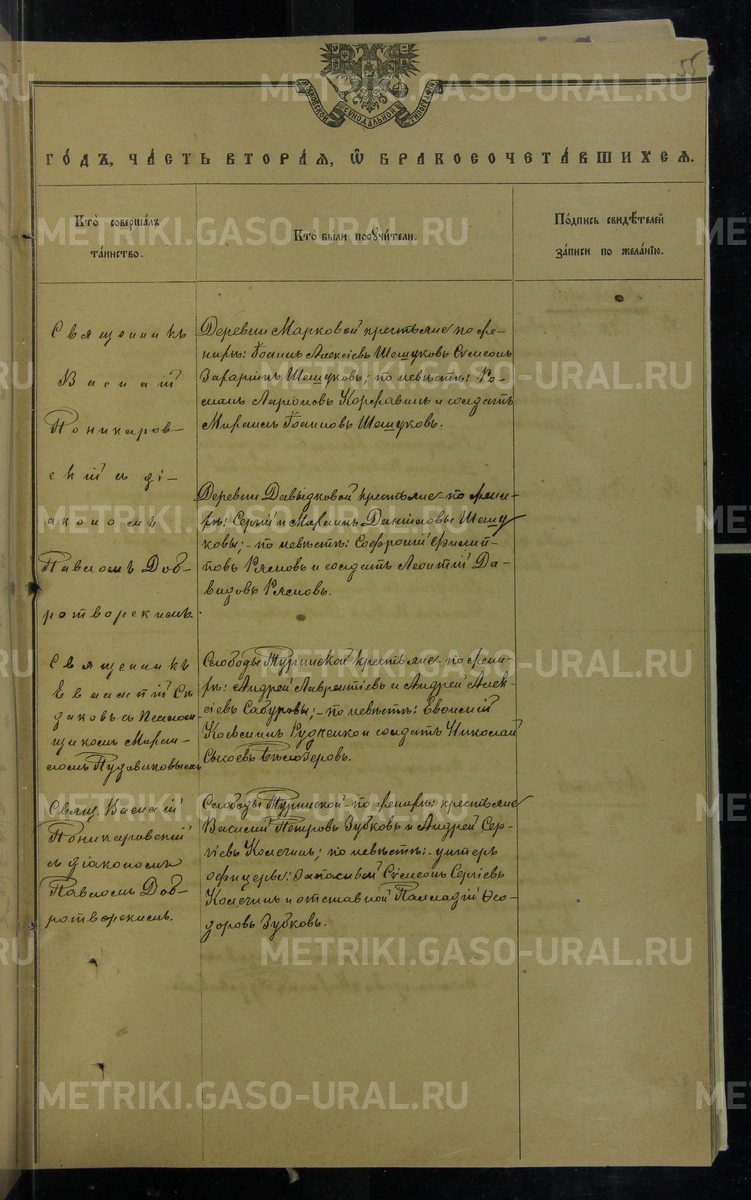 55
МОСКОВСКОЙ СѴНОДАЛЬНОЙ ТИПОГРАФІИ
ГОДЪ, ЧАСТЬ ВТОРАЯ, Ѡ БРАКОСОЧЕТАВШИХСЯ.
Кто совершалъ
таинство.
Кто были поручители.
Подпись свидѣтелей
записи по желанію.
Священникъ
Василій
Поникаров-
скій съ ді-
акономъ
Павломъ Доб-
ротворскимъ.
Деревни Марковой крестьяне по же-
нихѣ: Іоаннъ Алексіевъ Шешуковъ Сѵмеонъ
Захаринъ Шешуковъ; по невѣстѣ: Ро-
манъ Ларіоновъ Коржавинъ и солдатъ
Михаилъ Іоанновъ Шешуковъ.
Деревни Давыдковой крестьяне по жени-
хѣ: Сергій и Максимъ Даниловы Шешу-
ковы; по невѣстѣ: Софроній Филип-
повъ Рямовъ и солдатъ Леонтій Да-
видовъ Рямовъ.
Священникъ
Евлампій Сѣ-
даковъ съ Псаломщ-
щикомъ Михаи-
ломъ Пудовиковымъ
Слободы Туринской крестьяне по жени-
хѣ: Андрей Лаврентіевъ и Андрей Алек-
сіевъ Сабуровы; по невѣстѣ: Евфимій
Косминъ Рудненко и солдатъ Николай
Сысоевъ Бѣлозеровъ.
Свящ. Василій
Поникаровскій
съ діакономъ
Павломъ Доб-
ротворскимъ.
Слободы Туринской по женихѣ: крестьяне
Василій Петровъ Зубковъ и Андрей Сер-
гіевъ Колегинъ; по невѣстѣ: унтеръ
офицеры: запасный Сѵмеонъ Сергіевъ
Колегинъ и отставной Палладій Ѳео-
доровъ Зубковъ.
METRIKI.GASO-URAL.RU